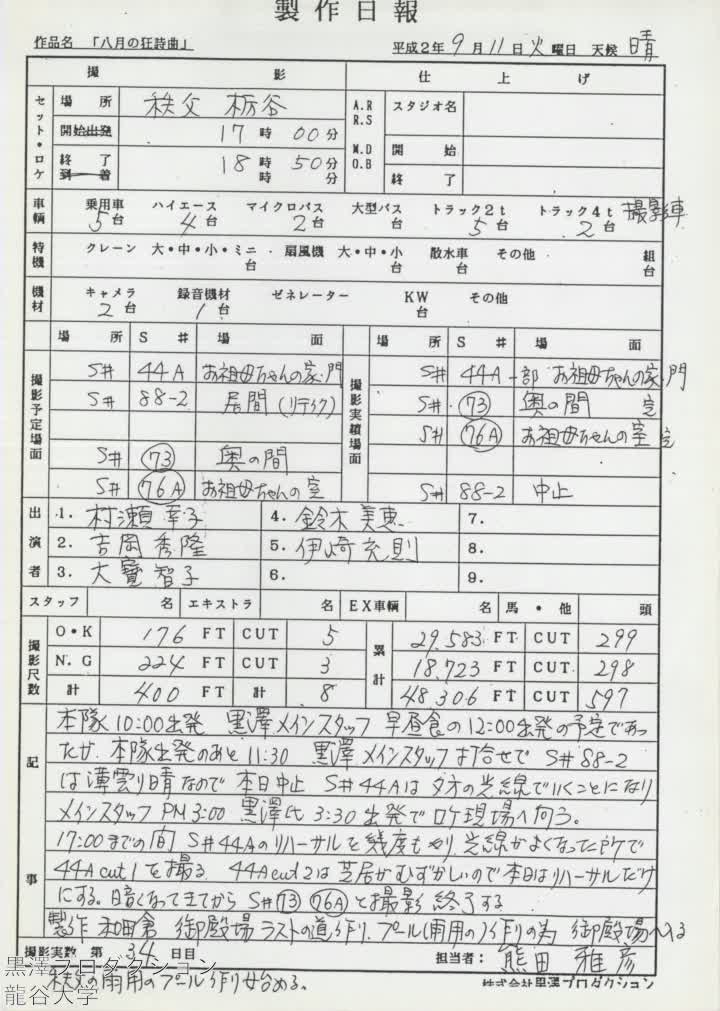 製作日報
作品名 「八月の狂詩曲」 平成2年 9月 11日 火曜日 天候 晴
撮影 仕上げ
セット・ロケ 場所 秩父 栃谷 A.R R.S スタジオ名
開始出発 17時 00分
M.D O.B 開始
終了 18時 50分
到着 時 分 終了
車輌 乗用車 ハイエース マイクロバス 大型バス トラック2t トラック4t 撮影車
5台 4台 2台 台 5台 2台
特機 クレーン 大・中・小・ミニ 扇風機 大・中・小 散水車 その他 組
台 台 台 台
機材 キャメラ 録音機材 ゼネレーター KW その他
2台 1台 台
場所 S# 場面 場所 S# 場面
撮影予定場面 撮影実績場面
S# 44A お祖母ちゃんの家・門 S# 44A 一部 お祖母ちゃんの家・門
S# 88-2 居間(リテイク) S# 73 奥の間 完
S# 76A お祖母ちゃんの室 完
S# 73 奥の間
S# 76A お祖母ちゃんの室 S# 88-2 中止
出演者 1. 村瀬幸子 4. 鈴木美恵 7.
2. 吉岡秀隆 5. 伊崎充則 8.
3. 大寶智子 6. 9.
スタッフ 名 エキストラ 名 EX車輌 名 馬・他 頭
撮影尺数 O・K 176 FT CUT 5 累計 29,583 FT CUT 299
N.G 224 FT CUT 3 18,723 FT CUT 298
計 400 FT 計 8 48,306 FT CUT 597
記事
本隊10:00出発 黒澤メインスタッフ 早昼食の12:00出発の予定であ
ったが、本隊出発のあと11:30 黒澤メインスタッフ打合せで S#88-2
は薄雲り晴なので本日中止 S#44Aは夕方の光線でいくことになり
メインスタッフPM3:00 黒澤氏3:30出発でロケ現場へ向う。
17:00までの間 S#44Aのリハーサルを幾度もやり、光線がよくなった所で
44A cut1を撮る。44A cut2は芝居がむずかしいので本日はリハーサルだけ
にする。暗くなってきてから S#73 76Aと撮影終了する
製作 和田倉 御殿場ラストの道作り、プール(雨用の)作りの為 御殿場へ入る
撮影実数 第 34 日目 担当者: 熊田雅彦
秩父の雨用のプール作り始める。
株式会社黒澤プロダクション
黒澤プロダクション
龍谷大学